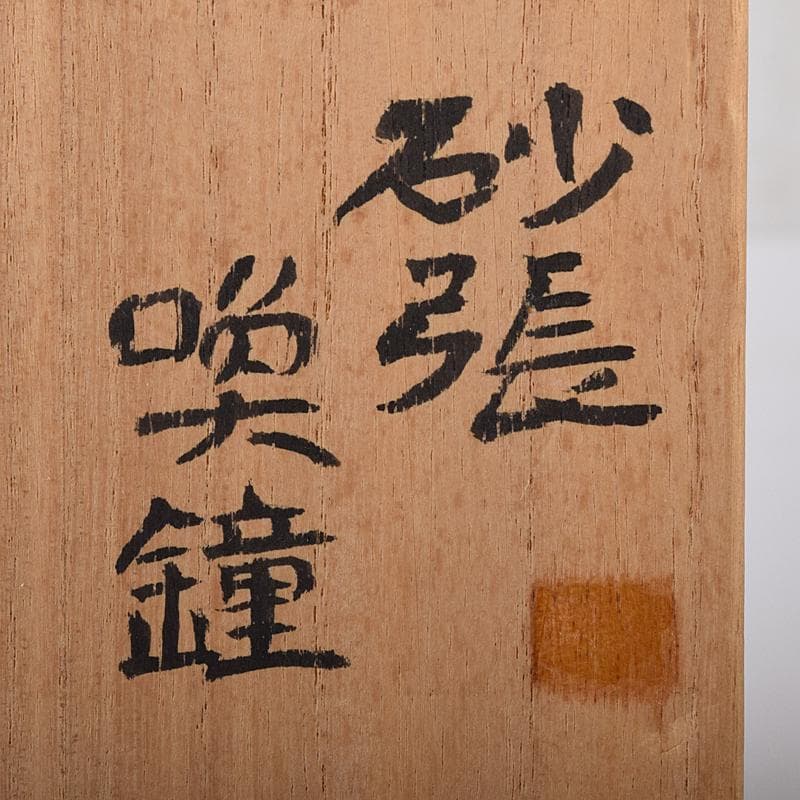 砂張
喚鐘